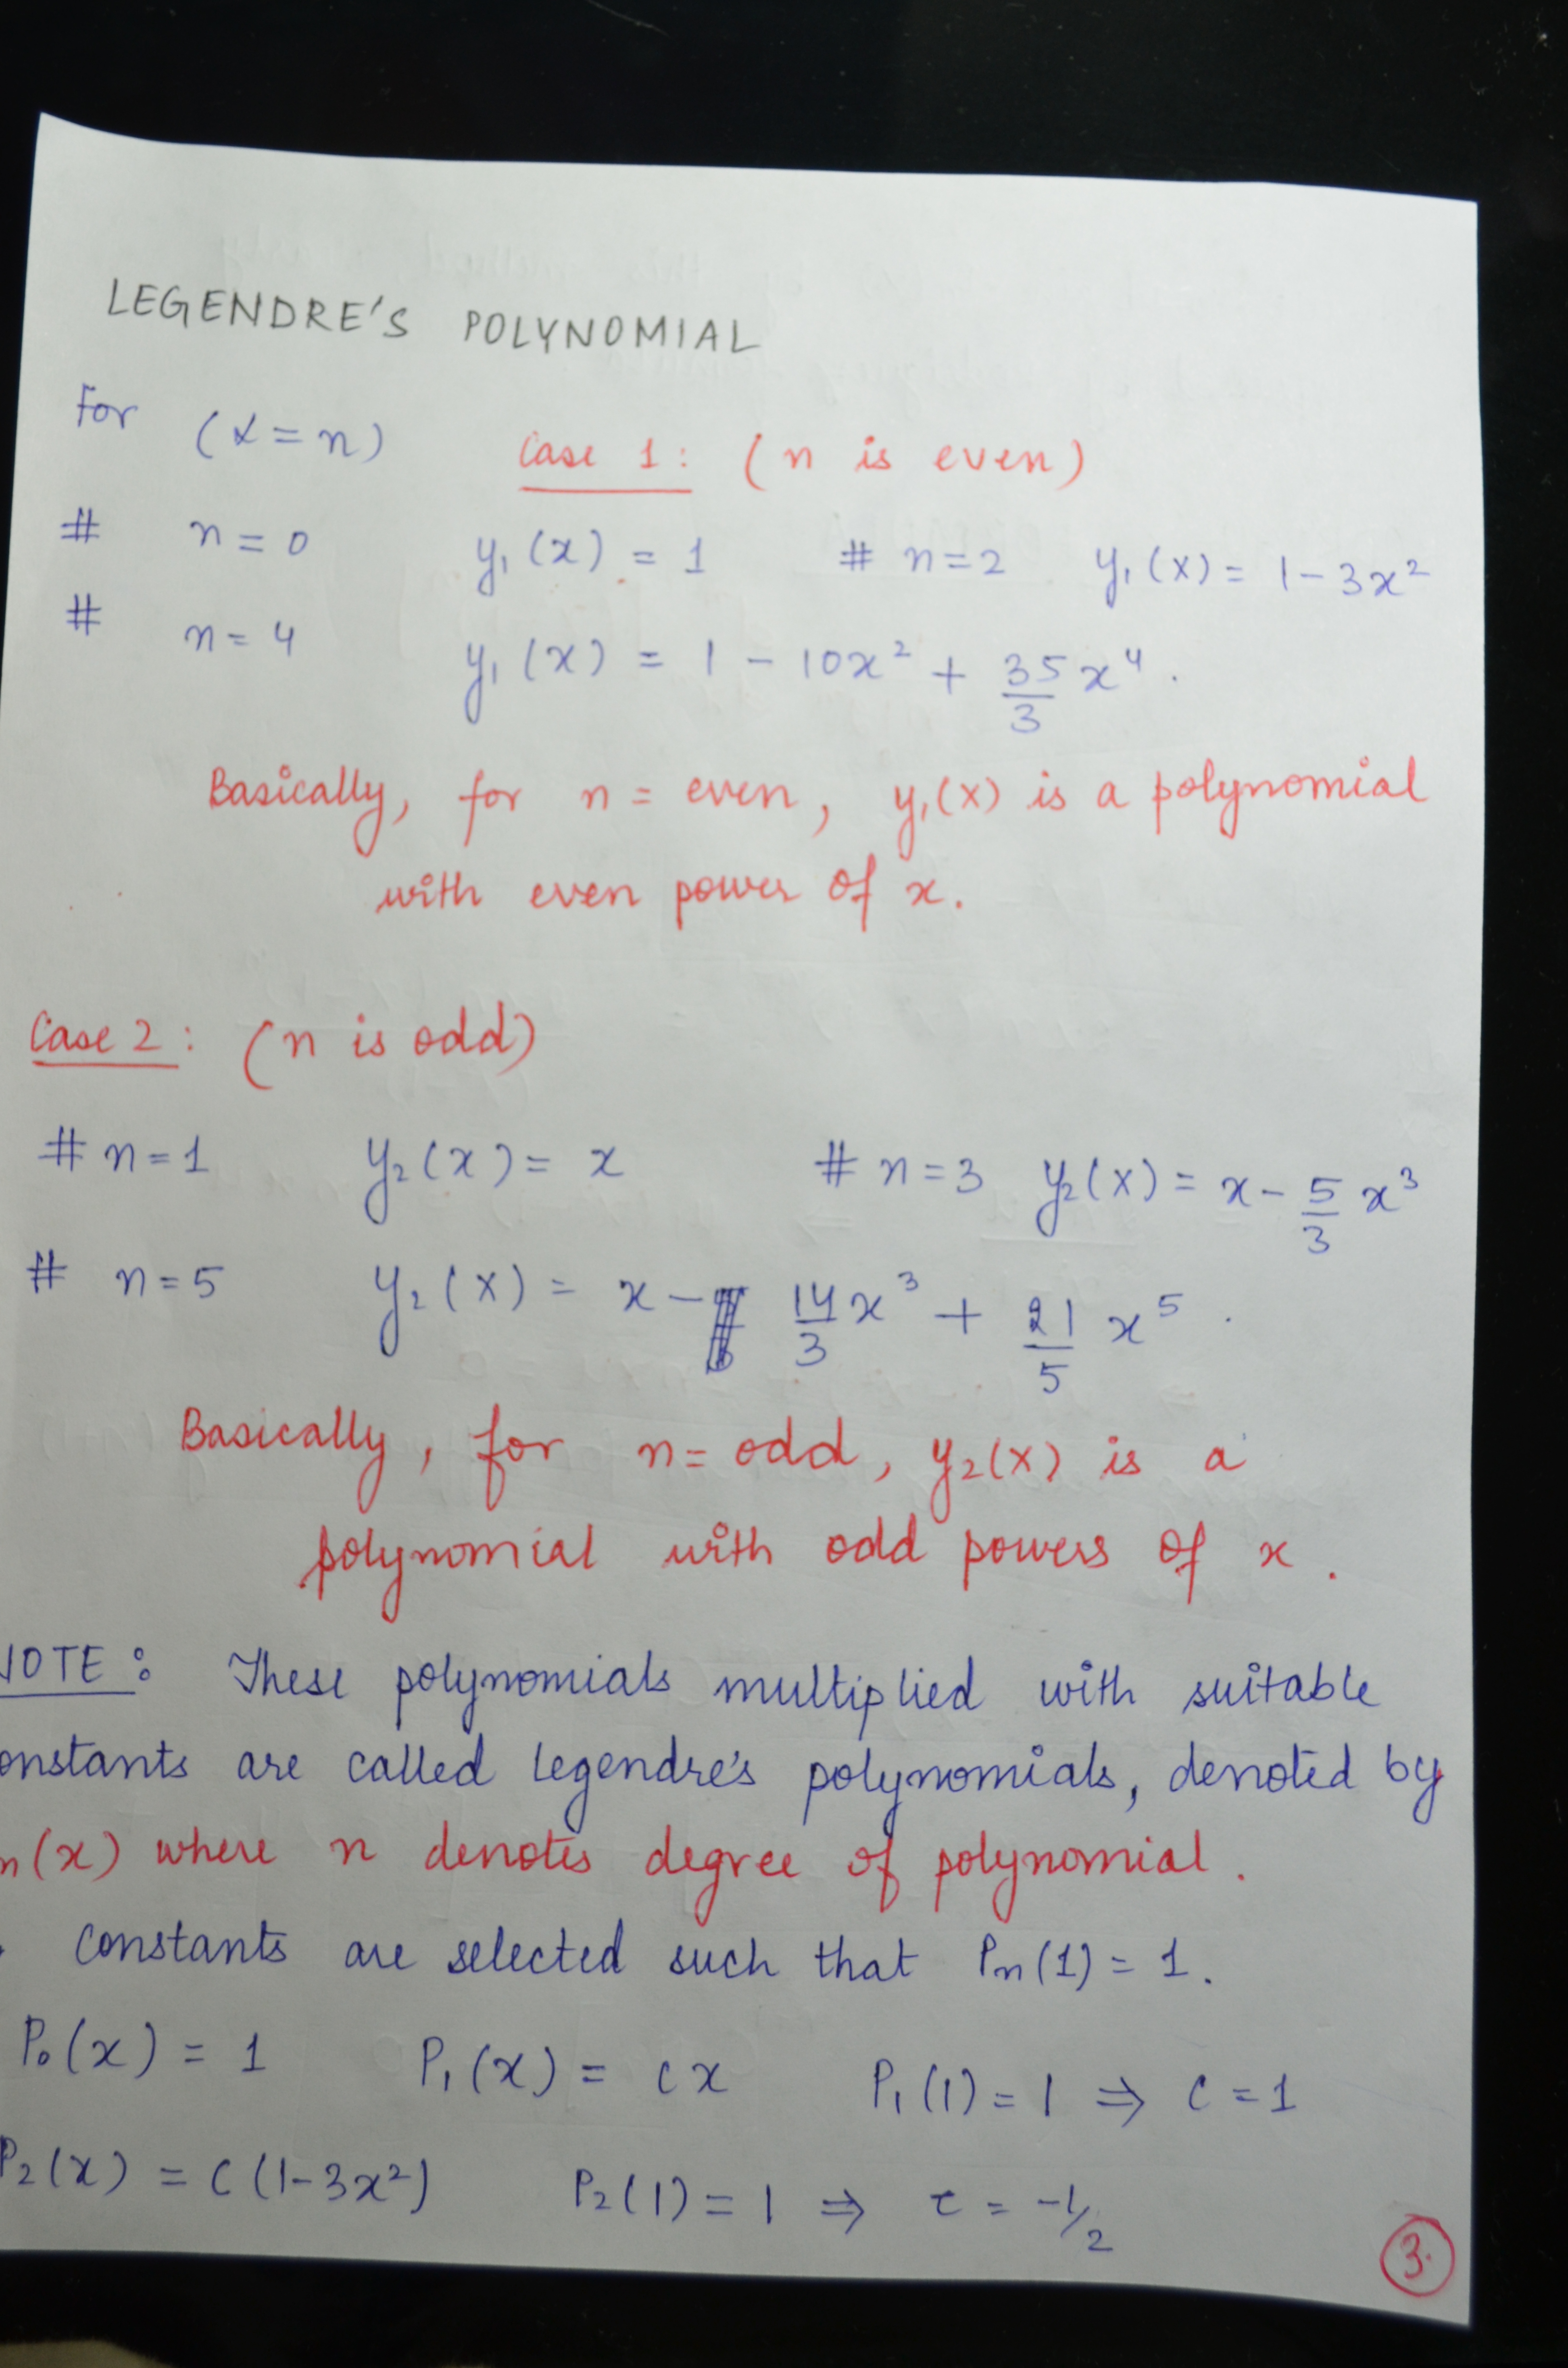 LEGENDRE'S POLYNOMIAL
For (α = n) Case 1: (n is even)
# n = 0 y₁(x) = 1 # n = 2 y₁(x) = 1 - 3x²
# n = 4 y₁(x) = 1 - 10x² + 35/3 x⁴.
Basically, for n = even, y₁(x) is a polynomial
with even power of x.
Case 2: (n is odd)
# n = 1 y₂(x) = x # n = 3 y₂(x) = x - 5/3 x³
# n = 5 y₂(x) = x - 14/3 x³ + 21/5 x⁵.
Basically, for n = odd, y₂(x) is a
polynomial with odd powers of x.
NOTE: These polynomials multiplied with suitable
onstants are called legendre's polynomials, denoted by
n(x) where n denotes degree of polynomial.
constants are selected such that Pn(1) = 1.
P₀(x) = 1 P₁(x) = cx P₁(1) = 1 ⇒ c = 1
P₂(x) = c(1 - 3x²) P₂(1) = 1 ⇒ c = -1/2
3.